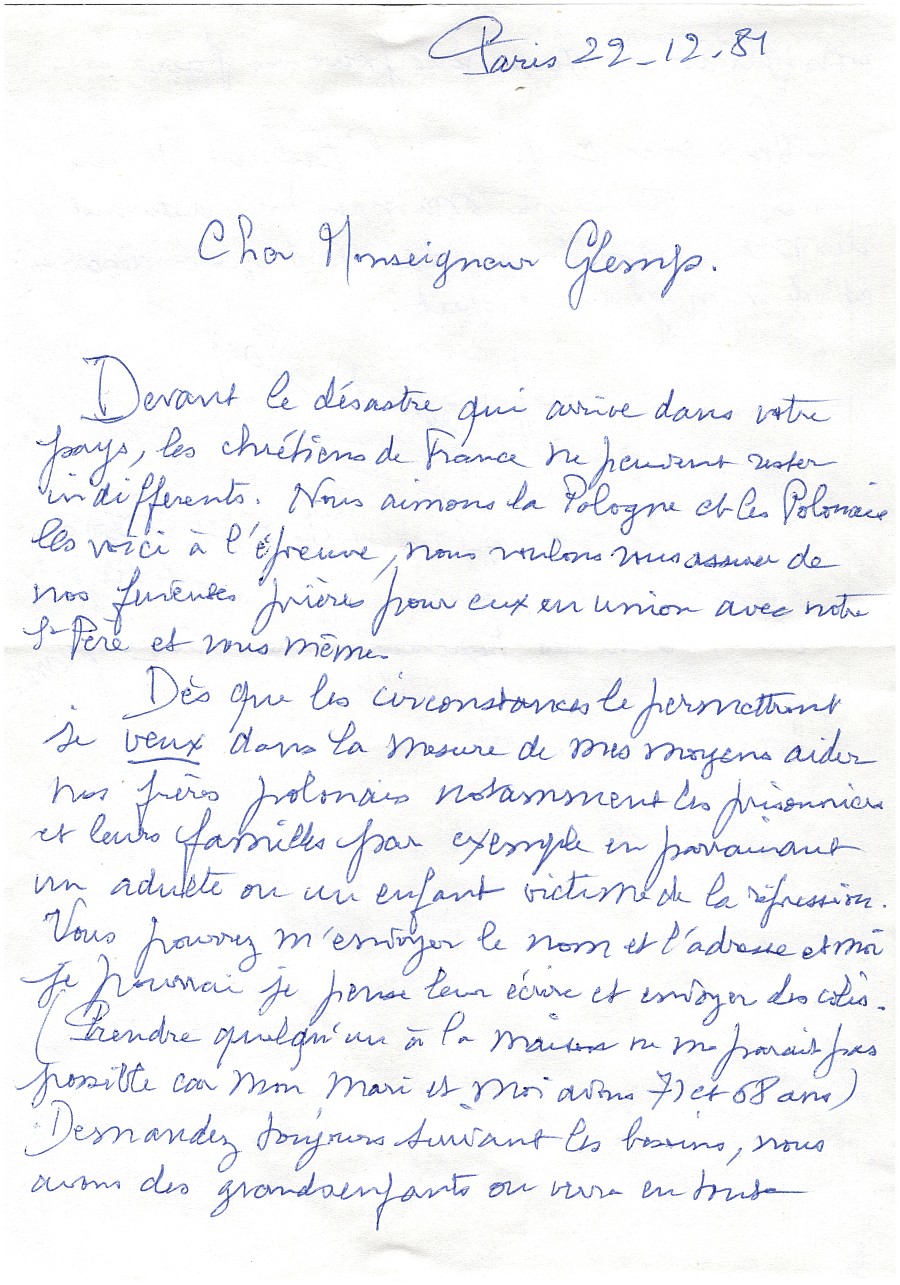 Paris 22-12-81
Cher Monseigneur Glemp.
Devant le désastre qui arrive dans votre
pays, les chrétiens de France ne peuvent rester
indifférents. Nous aimons la Pologne et les Polonais
les voici à l'épreuve, nous voulons vous assurer de
nos prières pour eux en union avec notre
St Père et vous même.
Dès que les circonstances le permettront
je veux dans la mesure de mes moyens aider
nos frères polonais notamment les prisonniers
et leurs familles par exemple en parrainant
un adulte ou un enfant victime de la répression.
Vous pourrez m'envoyer le nom et l'adresse et moi
je pourrai je pense leur écrire et envoyer des colis.
(Prendre quelqu'un à la maison ne me parait pas
possible car mon mari et moi avons 71 et 68 ans)
Demandez toujours suivant les besoins, nous
avons des grands enfants on verra en